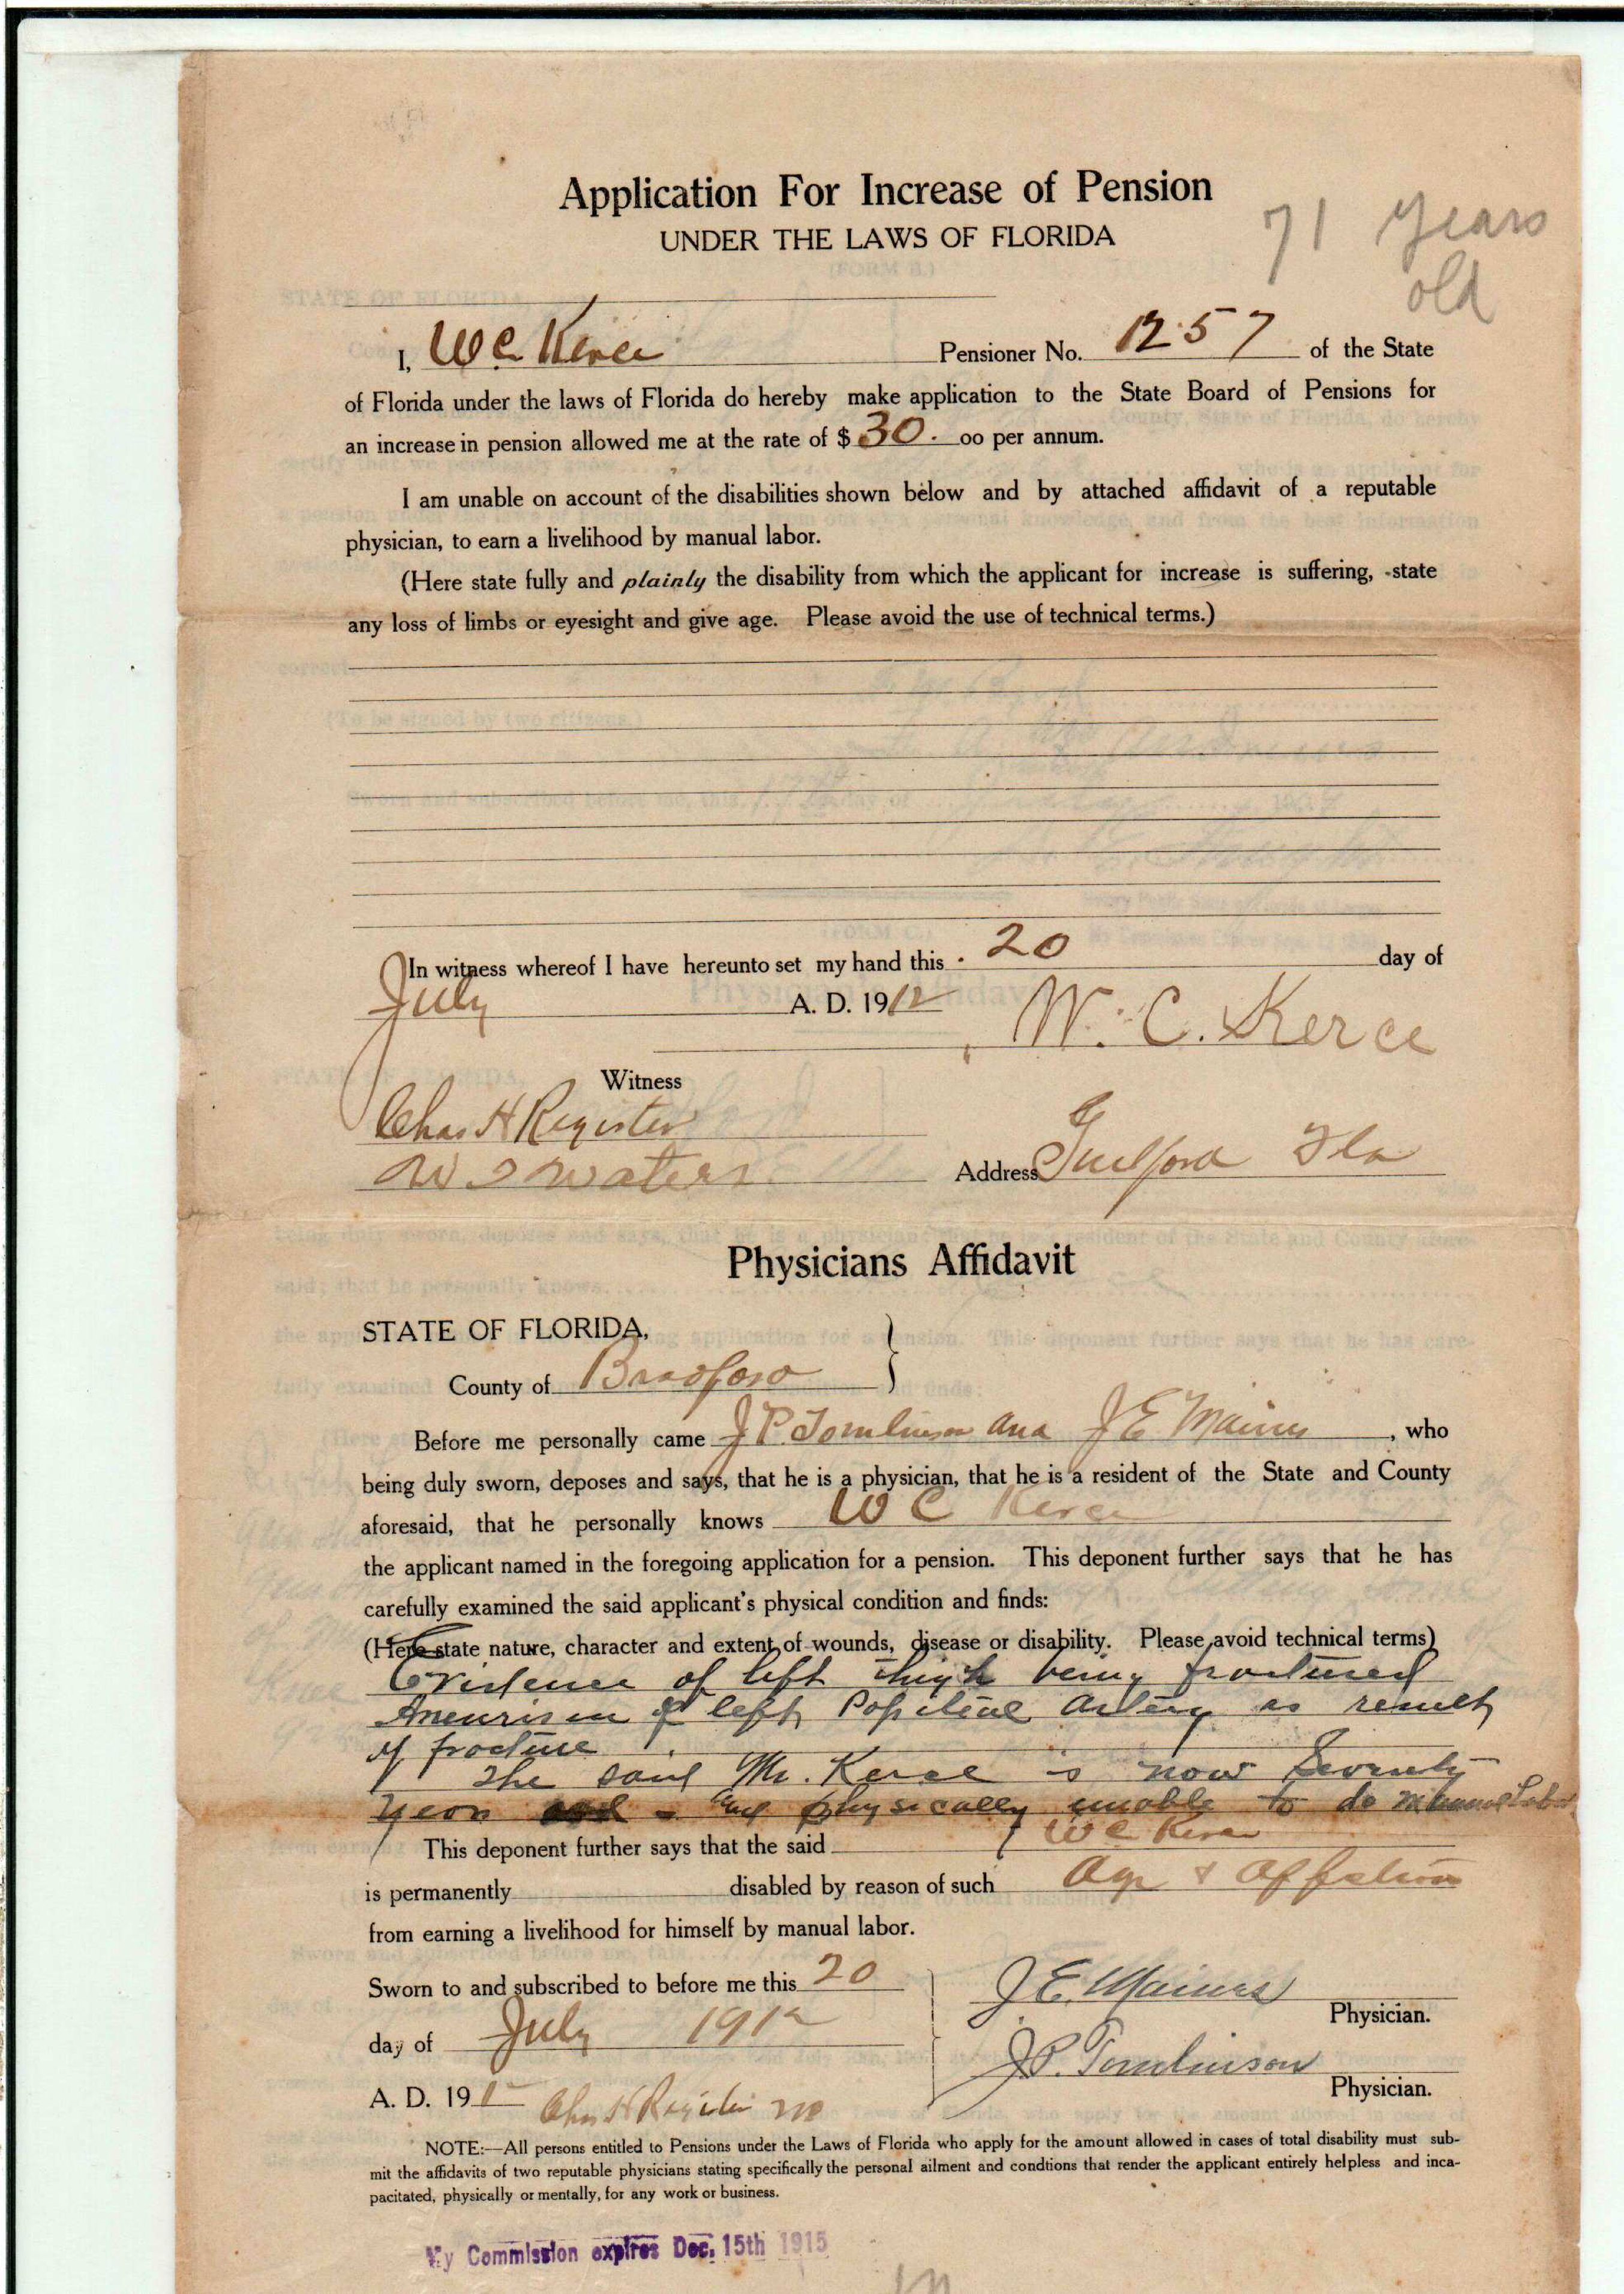 Application For Increase of Pension
UNDER THE LAWS OF FLORIDA
71 years
old
I, W C Kerce Pensioner No. 1257 of the State
of Florida under the laws of Florida do hereby make application to the State Board of Pensions for
an increase in pension allowed me at the rate of $ 30. oo per annum.
I am unable on account of the disabilities shown below and by attached affidavit of a reputable
physician, to earn a livelihood by manual labor.
(Here state fully and plainly the disability from which the applicant for increase is suffering, -state
any loss of limbs or eyesight and give age. Please avoid the use of technical terms.)
In witness whereof I have hereunto set my hand this 20 day of
July A. D. 1912
W. C. Kerce
Witness
Chas H Register
W J Waters
Address Guilford Fla
Physicians Affidavit
STATE OF FLORIDA,
County of Bradford
Before me personally came J P Tomlinson and J E Maines, who
being duly sworn, deposes and says, that he is a physician, that he is a resident of the State and County
aforesaid, that he personally knows W C Kerce
the applicant named in the foregoing application for a pension. This deponent further says that he has
carefully examined the said applicant's physical condition and finds:
(Here state nature, character and extent of wounds, disease or disability. Please avoid technical terms)
Evidence of left thigh being fractured
Aneurism of left Popliteal Artery as result
of fracture
The said Mr. Kerce is now Seventy
years and physically unable to do manual Labor
This deponent further says that the said W C Kerce
is permanently disabled by reason of such Age & Affliction
from earning a livelihood for himself by manual labor.
Sworn to and subscribed to before me this 20
day of July 1912
A. D. 191 Chas H Register
J E. Maines
Physician.
J P. Tomlinson
Physician.
NOTE:—All persons entitled to Pensions under the Laws of Florida who apply for the amount allowed in cases of total disability must sub-
mit the affidavits of two reputable physicians stating specifically the personal ailment and condtions that render the applicant entirely helpless and inca-
pacitated, physically or mentally, for any work or business.
My Commission expires Dec. 15th 1915